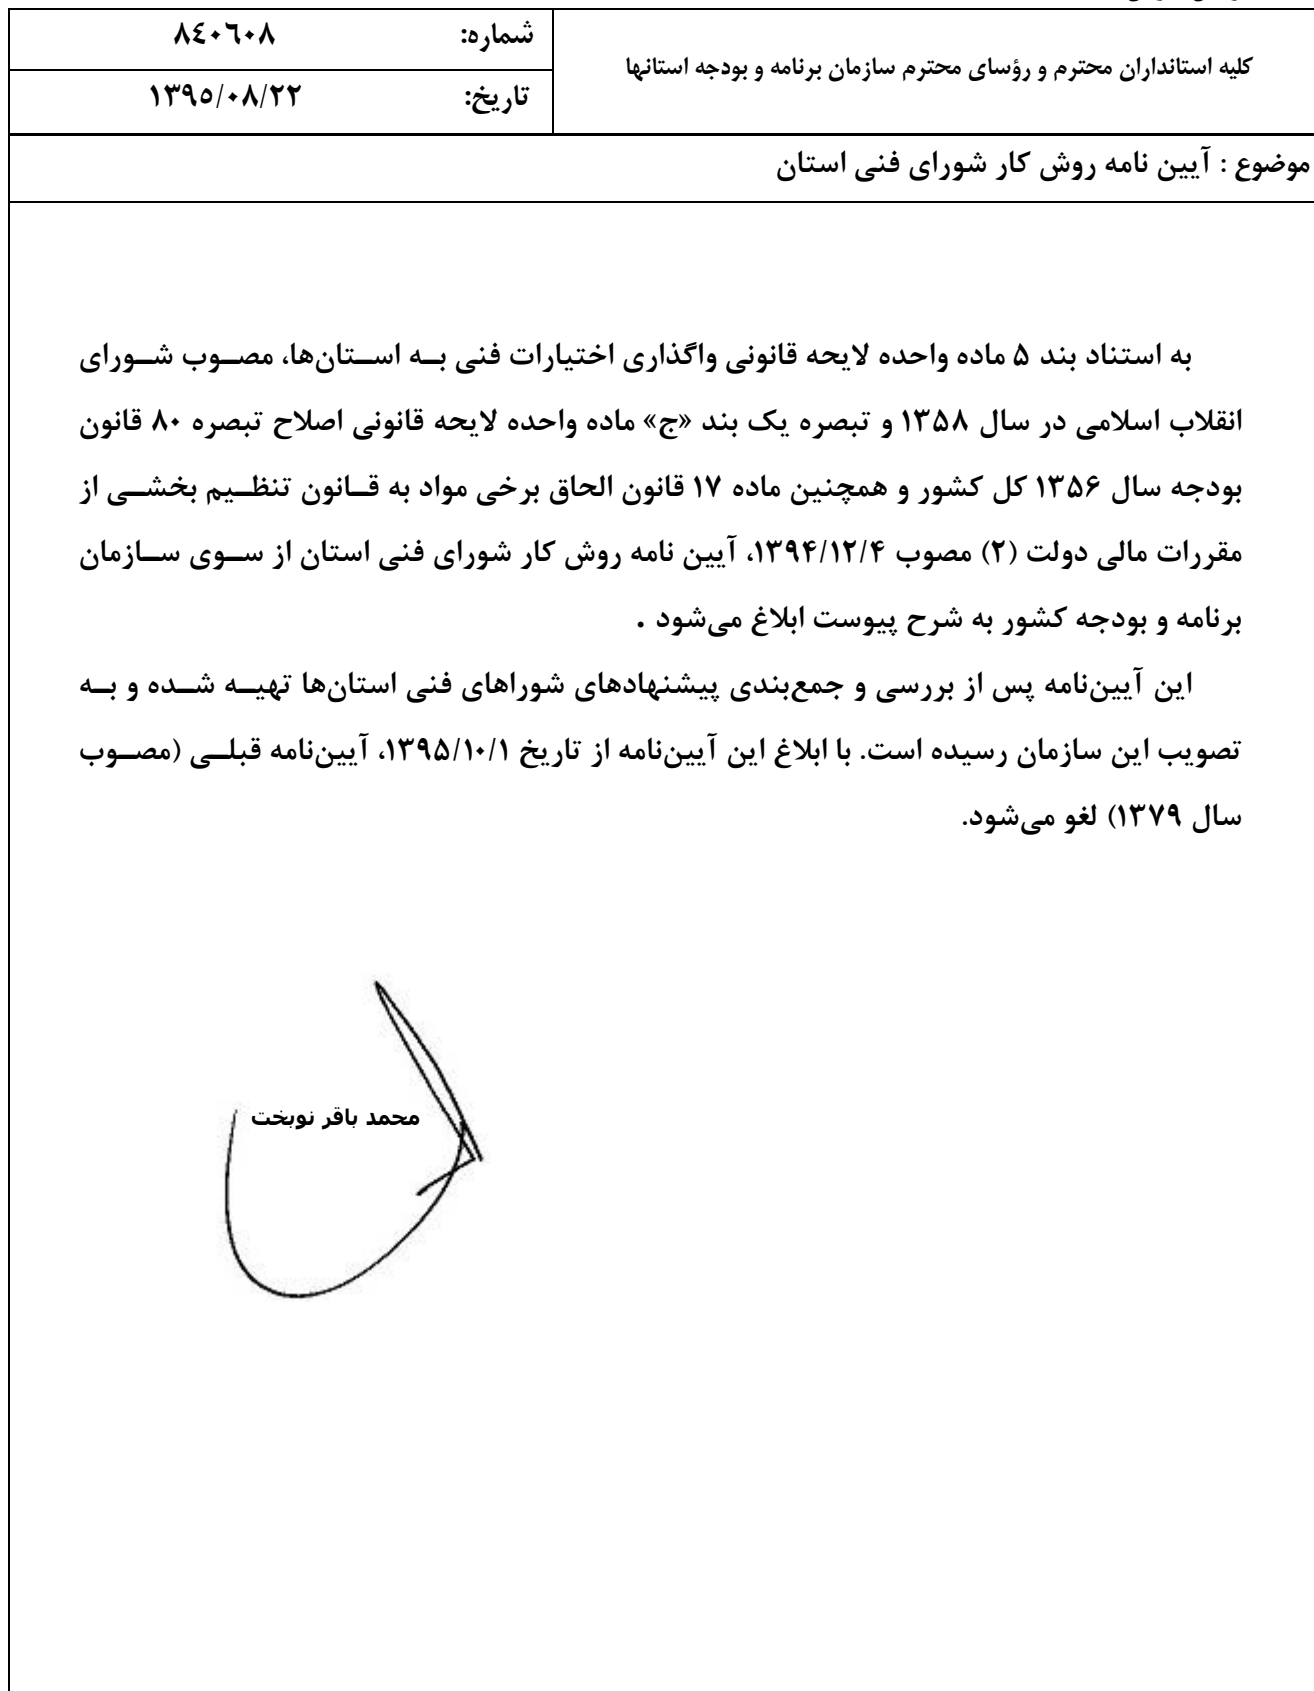 کلیه استانداران محترم و رؤسای محترم سازمان برنامه و بودجه استانها
شماره: ٨٤٠٦٠٨
تاریخ: ١٣٩٥/٠٨/٢٢
موضوع : آیین نامه روش کار شورای فنی استان
به استناد بند ۵ ماده واحده لایحه قانونی واگذاری اختیارات فنی بـه اسـتان‌ها، مصـوب شـورای
انقلاب اسلامی در سال ۱۳۵۸ و تبصره یک بند «ج» ماده واحده لایحه قانونی اصلاح تبصره ۸۰ قانون
بودجه سال ۱۳۵۶ کل کشور و همچنین ماده ۱۷ قانون الحاق برخی مواد به قـانون تنظـیم بخشـی از
مقررات مالی دولت (۲) مصوب ۱۳۹۴/۱۲/۴، آیین نامه روش کار شورای فنی استان از سـوی سـازمان
برنامه و بودجه کشور به شرح پیوست ابلاغ می‌شود .
این آیین‌نامه پس از بررسی و جمع‌بندی پیشنهادهای شوراهای فنی استان‌ها تهیـه شـده و بـه
تصویب این سازمان رسیده است. با ابلاغ این آیین‌نامه از تاریخ ۱۳۹۵/۱۰/۱، آیین‌نامه قبلـی (مصـوب
سال ۱۳۷۹) لغو می‌شود.
محمد باقر نوبخت